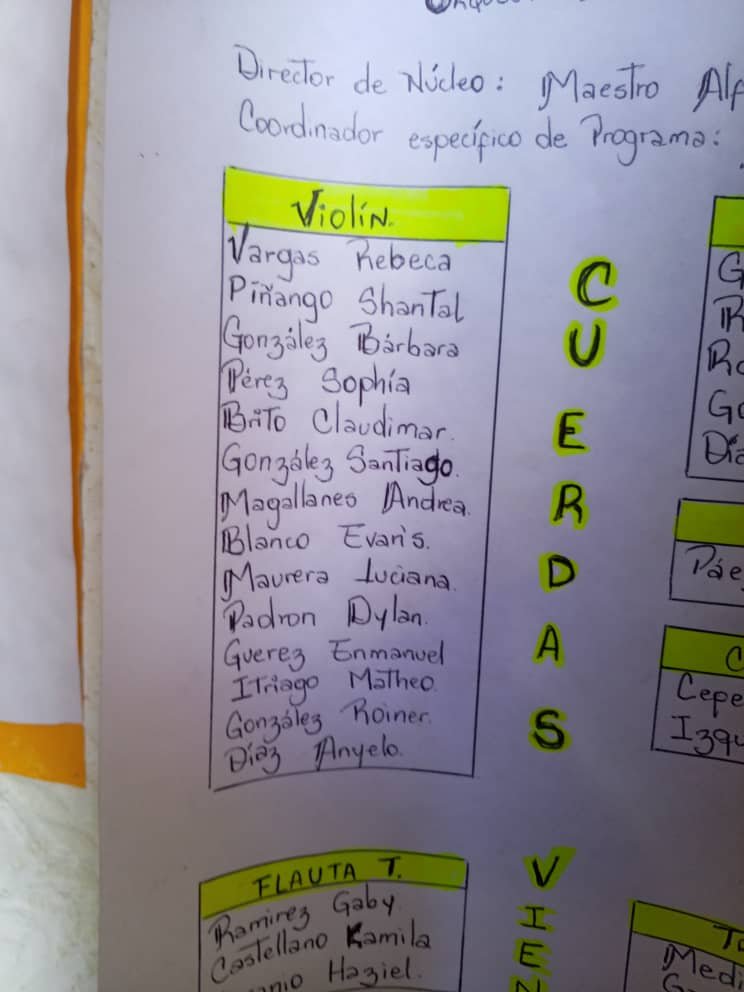 Director de Núcleo: Maestro
Coordinador específico de Programa:
Violín.
Vargas Rebeca
Piñango Shantal
González Bárbara
Pérez Sophía
Brito Claudimar.
González Santiago.
Magallanes Andrea.
Blanco Evan's.
Maurera Luciana.
Padron Dylan.
Guerez Enmanuel
Itriago Matheo.
González Roiner.
Díaz Anyelo.
CUERDAS
FLAUTA T.
Ramirez Gaby.
Castellano Kamila
Haziel.